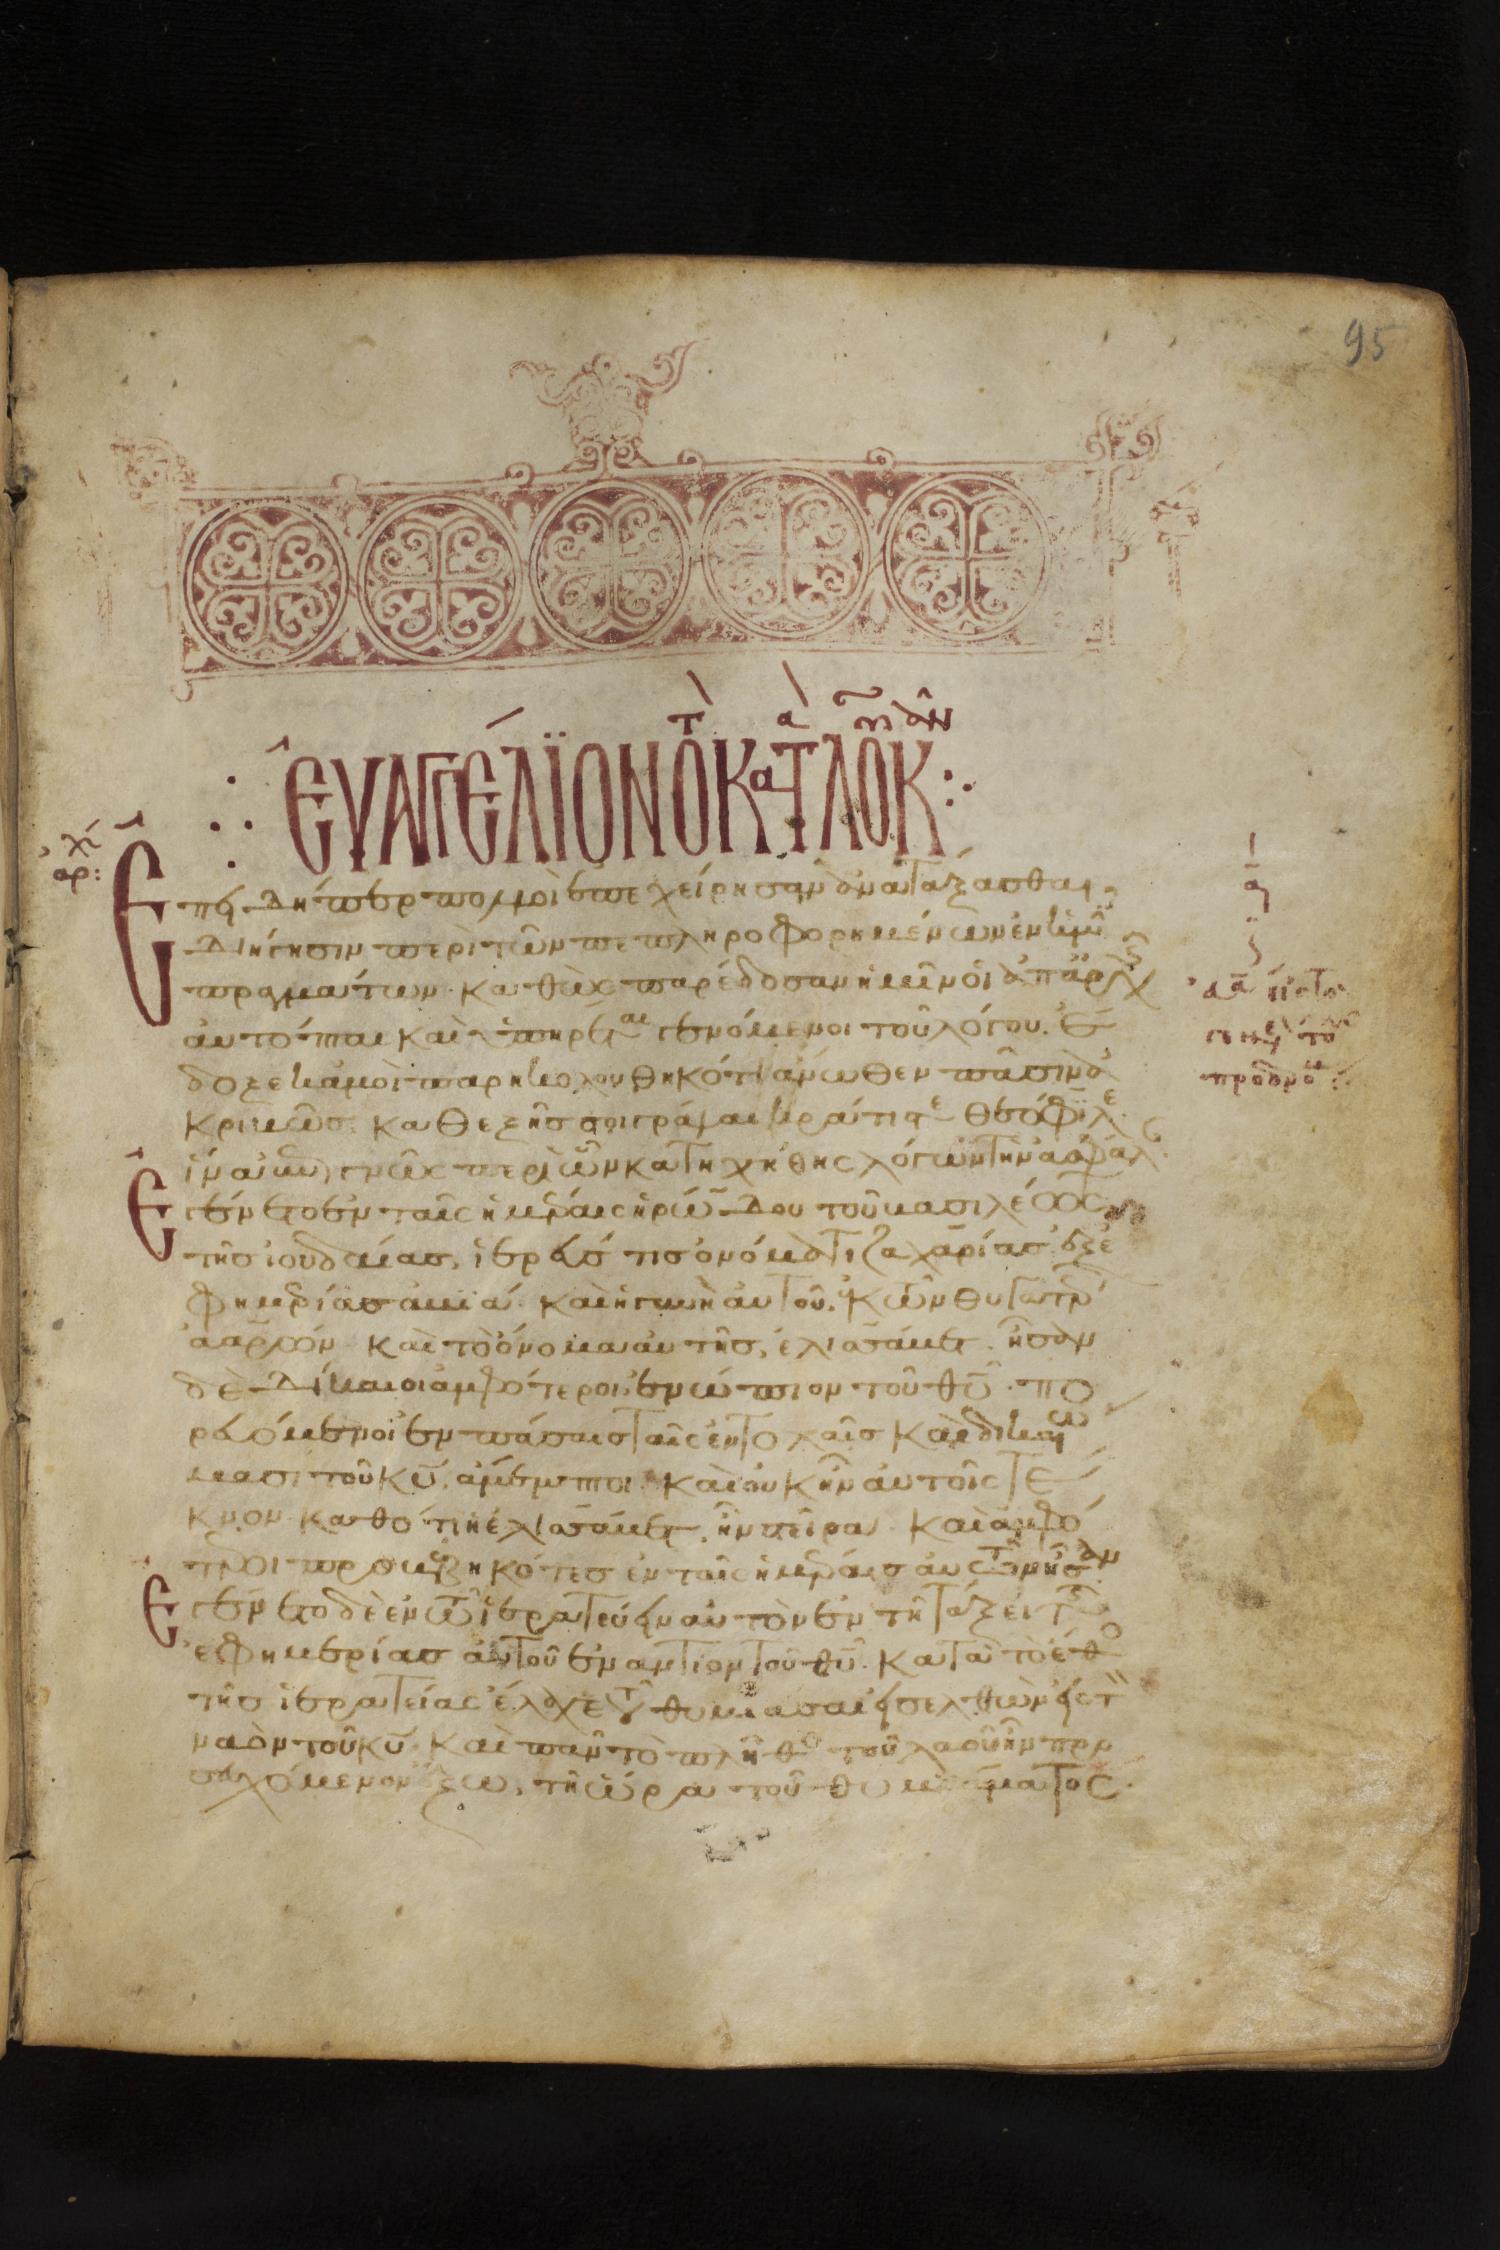 95
ΕΥΑΓΓΕΛΙΟΝ ΤΟ ΚΑΤΑ ΛΟΥΚΑΝ
ἀρχ
Ἐπειδήπερ πολλοὶ ἐπεχείρησαν ἀνατάξασθαι
διήγησιν περὶ τῶν πεπληροφορημένων ἐν ἡμῖν
πραγμάτων. καθὼς παρέδοσαν ἡμῖν οἱ ἀπ' ἀρχῆς
αὐτόπται καὶ ὑπηρέται γενόμενοι τοῦ λόγου. ἔ
δοξε κἀμοὶ παρηκολουθηκότι ἄνωθεν πᾶσιν ἀ
κριβῶς καθεξῆς σοι γράψαι κράτιστε θεόφιλε.
ἵνα ἐπιγνῶς περὶ ὧν κατηχήθης λόγων τὴν ἀσφάλ
Ἐγένετο ἐν ταῖς ἡμέραις ἡρώδου τοῦ βασιλέως
τῆς ἰουδαίας, ἱερεύς τις ὀνόματι ζαχαρίας ἐξ ἐ
φημερίας ἀβιά. καὶ ἡ γυνὴ αὐτοῦ, ἐκ τῶν θυγατέρ
ἀαρών. καὶ τὸ ὄνομα αὐτῆς, ἐλισάβετ. ἦσαν
δὲ δίκαιοι ἀμφότεροι ἐνώπιον τοῦ θυ. πο
ρευόμενοι ἐν πάσαις ταῖς ἐντολαῖς καὶ δικαιώ
μασι τοῦ κυ, ἄμεμπτοι. καὶ οὐκ ἦν αὐτοῖς τέ
κνον. καθότι ἡ ἐλισάβετ, ἦν στεῖρα. καὶ ἀμφό
τεροι προβεβηκότες ἐν ταῖς ἡμέραις αὐτῶν ἦσαν
Ἐγένετο δὲ ἐν τῷ ἱερατεύειν αὐτὸν ἐν τῇ τάξει τῆς
ἐφημερίας αὐτοῦ ἐναντίον τοῦ θυ. κατὰ τὸ ἔθος
τῆς ἱερατείας ἔλαχε τοῦ θυμιᾶσαι εἰσελθὼν εἰς τὸν
ναὸν τοῦ κυ. καὶ πᾶν τὸ πλῆθος τοῦ λαοῦ ἦν προ
σευχόμενον ἔξω, τῇ ὥρᾳ τοῦ θυμιάματος.